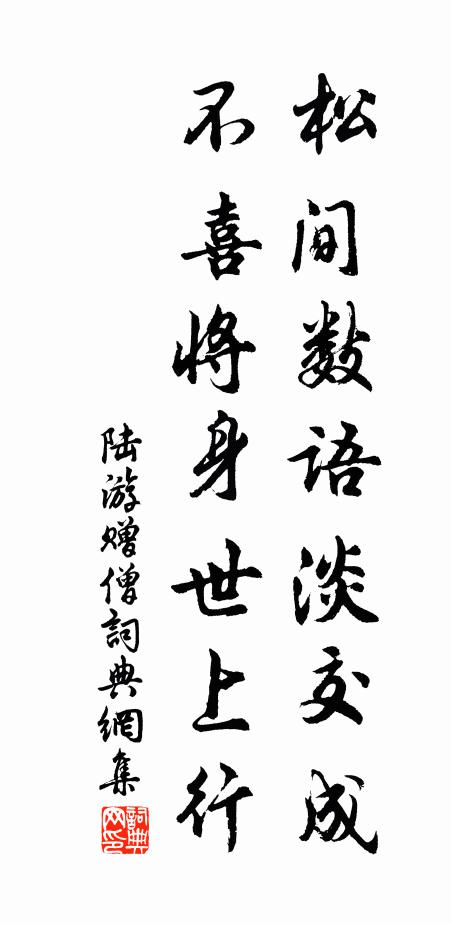 松间数语淡交成
不喜将身世上行
陆游赠僧詞典網集
詞典网印